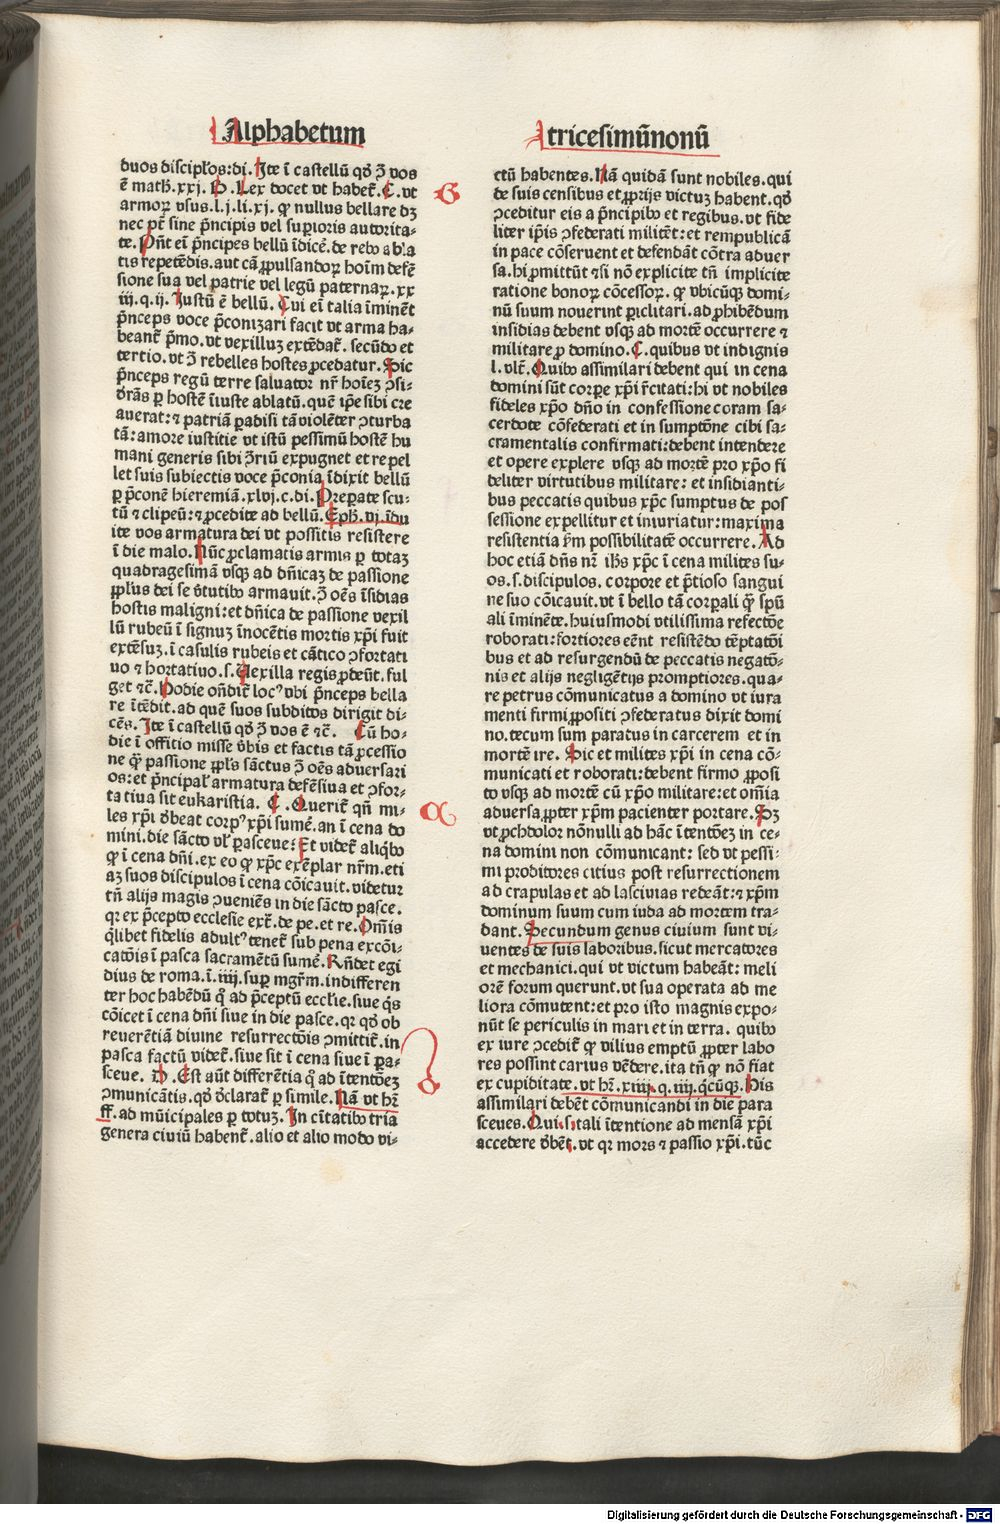 Alphabetum
duos discipl'os:di. Ite ī castellū qđ ꝯ̄ vos
ē math. xxj. D. Lex docet vt habet̄. C. vt
armoꝝ vsus. l. j. li. xj. ꝙ nullus bellare dꝫ
nec pt̄ sine p̄ncipis vel superioris autorita⸗
te. Pn̄t ei p̄ncipes bellū īdicē. de rebꝰ abla
tis repetēdis. aut cā ꝓpulsandoꝝ hoīm defē
sione sua vel patrie vel legū paternaꝝ. xx
iij. q. ij. Iustū ē bellū. Cui ei talia īminēt
p̄nceps voce p̄conizari facit vt arma ha⸗
beant̄ p̄mo. vt vexilluꝫ extēdat̄. secūdo et
tertio. vt ꝯ̄ rebelles hostes ꝓcedatur. Sic
p̄nceps regū terre saluator nr̄ hoīeꝫ ꝯsi⸗
derās ꝑ hostē īiuste ablatū. quē ip̄e sibi cre
auerat: ⁊ patriā paradisi tā violēter ꝯturba
tā: amore iustitie vt istū pessimū hostē hu
mani generis sibi ꝯ̄riū expugnet et repel
let suis subiectis voce p̄conia īdixit bellū
ꝑ p̄conē hieremiā. xlvj. c. di. Preparate scu⸗
tū ⁊ clipeū: ⁊ ꝓcedite ad bellū. Eph. vj. īdu
ite vos armatura dei vt possitis resistere
ī die malo. Nūc ꝓclamatis armis ꝑ totaꝫ
quadragesimā vsqꝫ ad dn̄icaꝫ de passione
ppl'us dei se v̄tutibꝰ armauit. ꝯ̄ oēs īsidias
hostis maligni: et dn̄ica de passione vexil
lū rubeū ī signuꝫ īnocētis mortis xp̄i fuit
extēsuꝫ. ī casulis rubeis et cātico ꝯfortati
uo ⁊ hortatiuo. s. Vexilla regis ꝓdeūt. ful
get ⁊c̄. Hodie on̄dit̄ locꝰ vbi p̄nceps bella
re ītēdit. ad quē suos subditos dirigit di⸗
cēs. Ite ī castellū qđ ꝯ̄ vos ē ⁊c̄. Cū ho⸗
die ī offitio misse v̄bis et factis tā ꝓcessio
ne qꝫ passione ppl's sāctus ꝯ̄ oēs aduersari
os: et p̄ncipal' armatura defēsiua et ꝯfor⸗
tatiua sit eukaristia. C. Querit̄ qn̄ mi⸗
les xp̄i debeat corpꝰ xp̄i sumē. an ī cena do
mini. die sācto vl' pasceue: Et videt̄ aliqbꝰ
ꝙ ī cena dn̄i. ex eo ꝙ xp̄c exēplar nr̄m. eti
aꝫ suos discipulos ī cena cōicauit. videtur
tn̄ alijs magis ꝯueniēs in die sācto pasce.
qr ex p̄cepto ecclesie ext̄. de pe. et re. Omīs
qlibet fidelis adultꝰ tenet̄ sub pena excōi⸗
catōis ī pasca sacramētū sumē. Rn̄det egi
dius de roma. ī. iiij. suꝑ mgr̄m. indifferen
ter hoc habēdū q̊ ad p̄ceptū ecclie. siue qs
cōicet ī cena dn̄i siue in die pasce. qr qđ ob
reuerētiā diuine resurrectōis ꝯmittit̄. in
pasca factū videt̄. siue sit ī cena siue ī pa⸗
sceue. D. Est aūt differētia q̊ ad ītentōeꝫ
ꝯmunicātis. qđ declarat̄ ꝑ simile. Nā vt hr̄
ff. ad mūicipales ꝑ totuꝫ. In cītatibꝰ tria
genera ciuiū habent̄. alio et alio modo vi⸗
tricesimūnonū
G
ctū habentes. Nā quidā sunt nobiles. qui
de suis censibus et ꝓprijs victuꝫ habent. qđ
ꝯceditur eis a p̄ncipibꝰ et regibus. vt fide
liter ip̄is ꝯfederati militēt: et rempublicā
in pace cōseruent et defendāt cōtra aduer
sa. hi ꝓmittūt ⁊si nō explicite tn̄ implicite
ratione bonoꝝ cōcessoꝝ. ꝙ vbicūqꝫ domi⸗
nū suum nouerint periclitari. ad ꝓhibēdum
insidias debent vsqꝫ ad mortē occurrere ⁊
militare ꝓ domino. C. quibus vt indignis
l. vlt̄. Quibꝰ assimilari debent qui in cena
domini sūt corꝑe xp̄i r̄citati: hi vt nobiles
fideles xp̄o dn̄o in confessione coram sa⸗
cerdote cōfederati et in sumptōne cibi sa⸗
cramentalis confirmati: debent intendere
et opere explere vsqꝫ ad mortē pro xp̄o fi
deliter virtutibus militare: et insidianti⸗
bus peccatis quibus xp̄c sumptus de pos
sessione expellitur et iniuriatur: maxima
resistentia ẜm possibilitatē occurrere. Ad
hoc etiā dn̄s nr̄ ih̄s xp̄c ī cena milites su⸗
os. s. discipulos. corpore et p̄tioso sangui
ne suo cōicauit. vt ī bello tā corporali qꝫ spū
ali īminēte. huiusmodi vtilissima refectōe
roborati: fortiores eēnt resistēdo tēptatōi
bus et ad resurgendū de peccatis negatō⸗
nis et alijs negligētijs promptiores. qua⸗
re petrus cōmunicatus a domino vt iura
menti firmi ꝓpositi ꝯfederatus dixit domi
no. tecum sum paratus in carcerem et in
mortē ire. Sic et milites xp̄i in cena cō⸗
municati et roborati: debent firmo ꝓposi
to vsqꝫ ad mortē cū xp̄o militare: et om̄ia
aduersa ꝓpter xp̄m pacienter portare. Sꝫ
vt ꝓchdolor nōnulli ad hāc ītentōeꝫ in ce⸗
na domini non cōmunicant: sed vt pessi⸗
mi proditores citius post resurrectionem
ad crapulas et ad lasciuias redeāt: ⁊ xp̄m
dominum suum cum iuda ad mortem tra⸗
dant. Secundum genus ciuium sunt vi⸗
uentes de suis laboribus. sicut mercatores
et mechanici. qui vt victum habeāt: meli
orē forum querunt. vt sua operata ad me
liora cōmutent: et pro isto magnis expo⸗
nūt se periculis in mari et in terra. quibꝰ
ex iure ꝯcedit̄ ꝙ vilius emptū ꝓpter labo
res possint carius vēdere. ita tn̄ ꝙ nō fiat
ex cupiditate. vt hr̄. xiiij. q. iiij. qcūqꝫ. His
assimilari debēt cōmunicandi in die para
sceues. Qui. s. tali ītentione ad mensā xp̄i
accedere debēt. vt qr mors ⁊ passio xp̄i. tūc
Digitalisierung gefördert durch die Deutsche Forschungsgemeinschaft - DFG